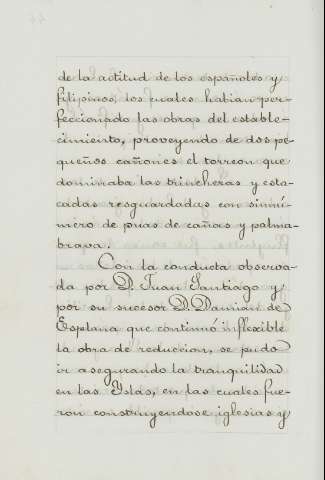 de la actitud de los españoles y
filipinos; los cuales habian per-
feccionado las obras del estable-
cimiento, proveyendo de dos pe-
queños cañones el torreon que
dominaba las trincheras y esta-
cadas resguardadas con sinnú-
mero de puas de cañas y palma-
brava.
Con la conducta observa-
da por D. Juan Santiago y
por su sucesor D. Damian de
Esplana que continuó inflexible
la obra de reduccion, se pudo
ir asegurando la tranquilidad
en las Yslas, en las cuales fue-
ron construyendose iglesias y